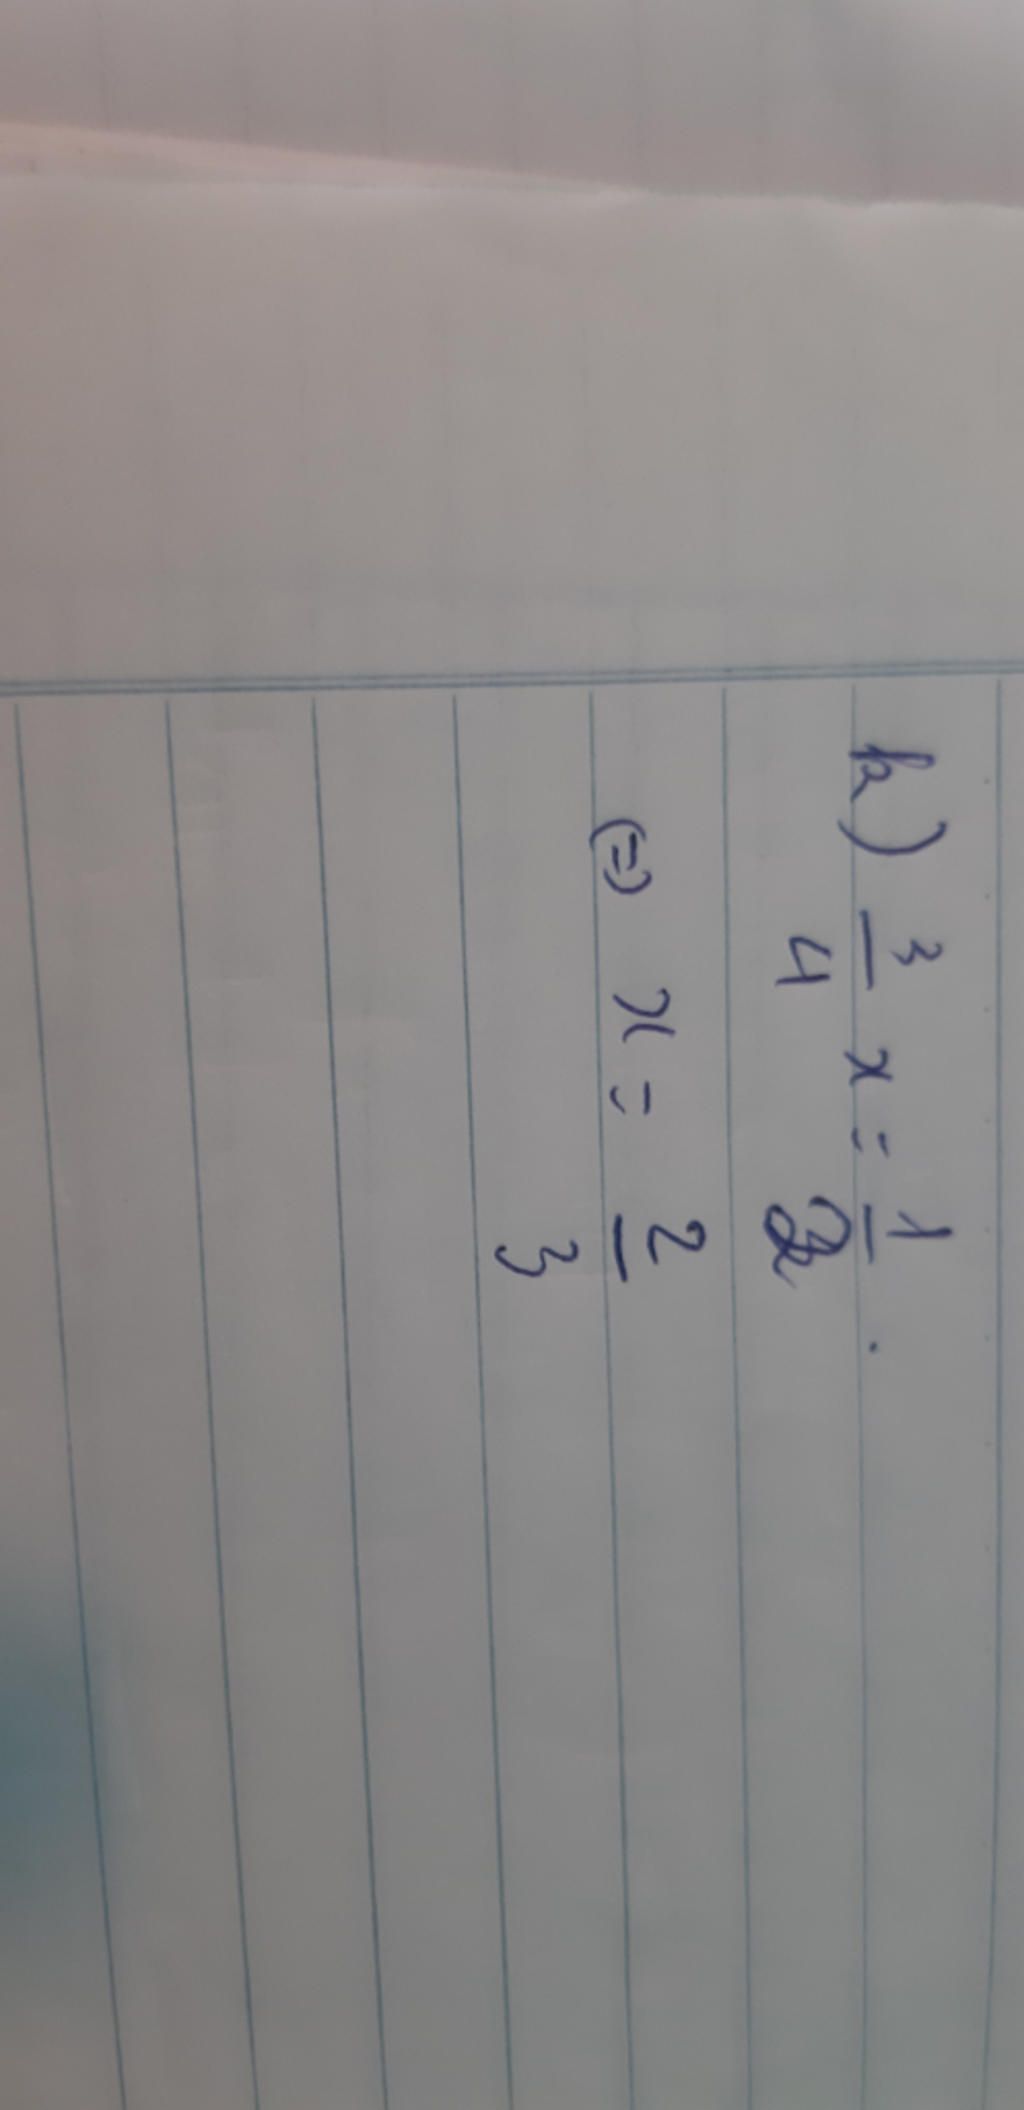 k) 3/4 x = 1/2 .
(=) x = 2/3